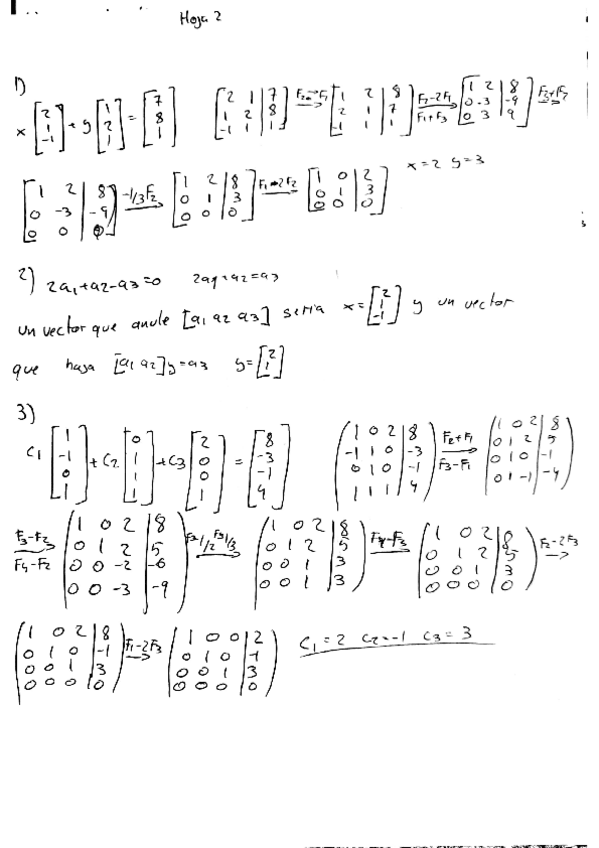 Hoja 2
1)
x [2 1 -1] + y [1 2 1] = [7 8 1] [2 1 | 7; 1 2 | 8; -1 1 | 1] F2↔F1 → [1 2 | 8; 2 1 | 7; -1 1 | 1] F2-2F1 F1+F3 → [1 2 | 8; 0 -3 | -9; 0 3 | 9] F2+F3 →
[1 2 | 8; 0 -3 | -9; 0 0 | 0] -1/3F2 → [1 2 | 8; 0 1 | 3; 0 0 | 0] F1-2F2 → [1 0 | 2; 0 1 | 3; 0 0 | 0] x=2 y=3
2) 2a1+a2-a3=0 2a1+a2=a3
un vector que anule [a1 a2 a3] seria x=[2 1 -1] y un vector
que haga [a1 a2]y=a3 y=[2 1]
3)
C1 [1 -1 0 1] + C2 [0 1 1 1] + C3 [2 0 0 1] = [8 -3 -1 4] (1 0 2 | 8; -1 1 0 | -3; 0 1 0 | -1; 1 1 1 | 4) F2+F1 F3-F1 → (1 0 2 | 8; 0 1 2 | 5; 0 1 0 | -1; 0 1 -1 | -4)
F3-F2 F4-F2 → (1 0 2 | 8; 0 1 2 | 5; 0 0 -2 | -6; 0 0 -3 | -9) → (1 0 2 | 8; 0 1 2 | 5; 0 0 1 | 3; 0 0 1 | 3) F4-F3 → (1 0 2 | 8; 0 1 2 | 5; 0 0 1 | 3; 0 0 0 | 0) F2-2F3 →
(1 0 2 | 8; 0 1 0 | -1; 0 0 1 | 3; 0 0 0 | 0) F1-2F3 → (1 0 0 | 2; 0 1 0 | -1; 0 0 1 | 3; 0 0 0 | 0) C1=2 C2=-1 C3=3